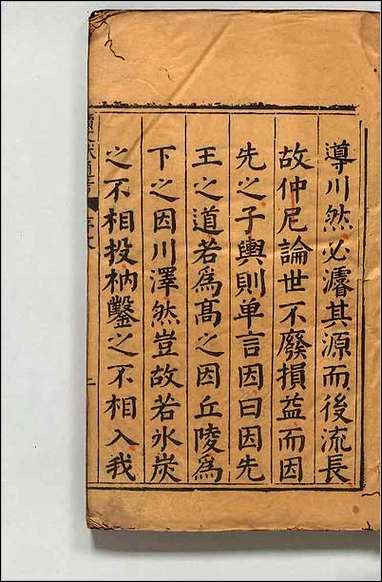 導川然必濬其源而後流長
故仲尼論世不廢損益而因
先之子輿則单言因曰因先
王之道若爲髙之因丘陵爲
下之因川澤然豈故若氷炭
之不相投枘鑿之不相入我